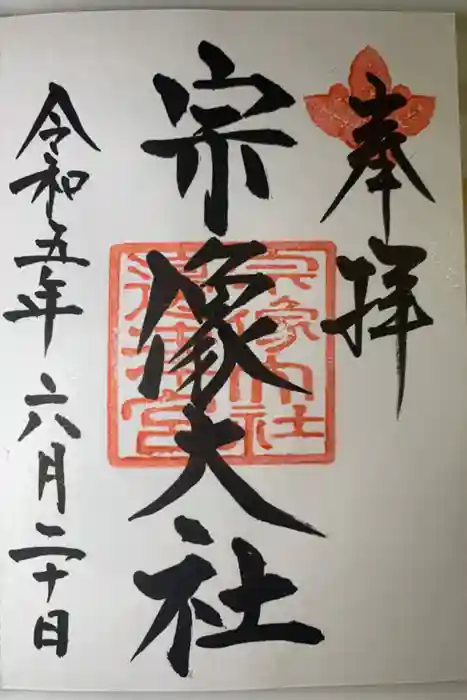 奉拝
宗像大社
令和五年六月二十日
宗像大社
邊津宮